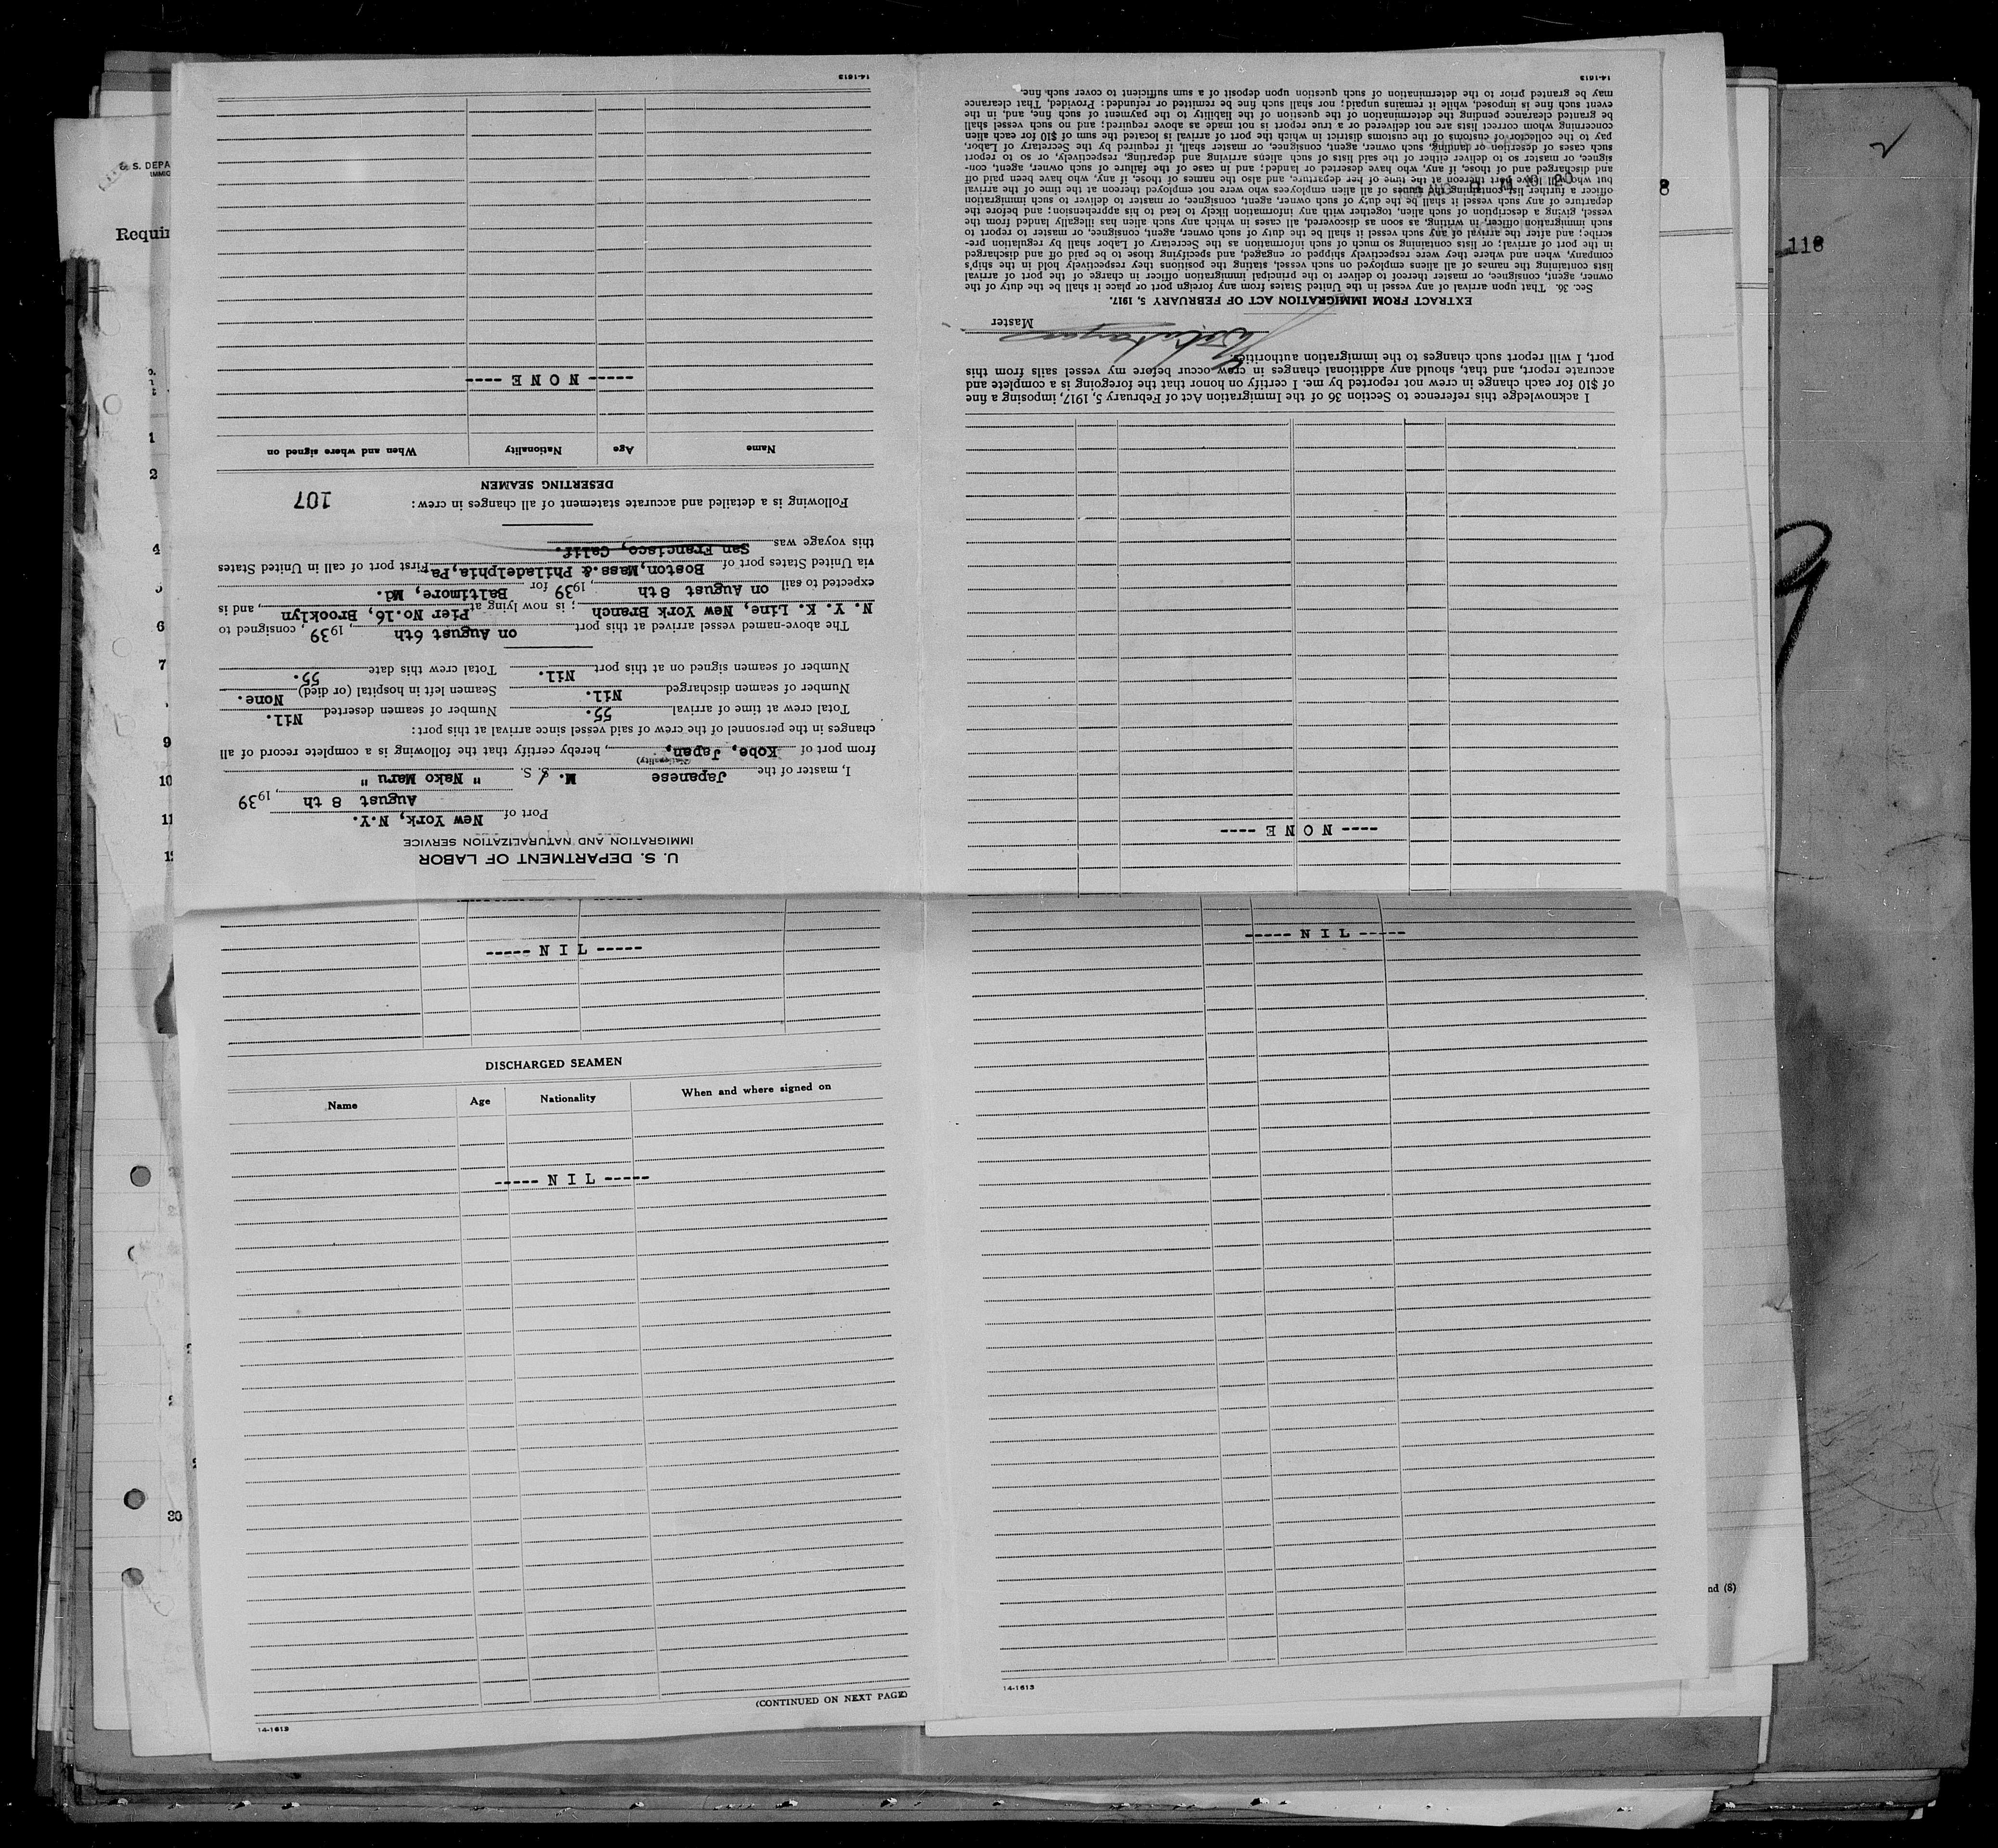 U. S. DEPARTMENT OF LABOR
IMMIGRATION AND NATURALIZATION SERVICE
Port of New York, N.Y.
August 8 th, 1939
I, master of the Japanese M. S. S. " Nako Maru "
(Nationality)
from port of Kobe, Japan, hereby certify that the following is a complete record of all
changes in the personnel of the crew of said vessel since arrival at this port:
Total crew at time of arrival 55. Number of seamen deserted Nil.
Number of seamen discharged Nil. Seamen left in hospital (or died) None.
Number of seamen signed on at this port Nil. Total crew this date 55.
The above-named vessel arrived at this port on August 6th, 1939, consigned to
N. Y. K. Line, New York Branch; is now lying at Pier No.16, Brooklyn, and is
expected to sail on August 8th, 1939 for Baltimore, Md.
via United States port of Boston,Mass.& Philadelphia,Pa. First port of call in United States
this voyage was San Francisco, Calif.
Following is a detailed and accurate statement of all changes in crew: 107
DESERTING SEAMEN
Name Age Nationality When and where signed on
----- N O N E ----
14-1613
---- N O N E ----
I acknowledge this reference to Section 36 of the Immigration Act of February 5, 1917, imposing a fine
of $10 for each change in crew not reported by me. I certify on honor that the foregoing is a complete and
accurate report, and that, should any additional changes in crew occur before my vessel sails from this
port, I will report such changes to the immigration authorities.
Master
EXTRACT FROM IMMIGRATION ACT OF FEBRUARY 5, 1917.
Sec. 36. That upon arrival of any vessel in the United States from any foreign port or place it shall be the duty of the
owner, agent, consignee, or master thereof to deliver to the principal immigration officer in charge of the port of arrival
lists containing the names of all aliens employed on such vessel, stating the positions they respectively hold in the ship's
company, when and where they were respectively shipped or engaged, and specifying those to be paid off and discharged
in the port of arrival; or lists containing so much of such information as the Secretary of Labor shall by regulation pre-
scribe; and after the arrival of any such vessel it shall be the duty of such owner, agent, consignee, or master to report to
such immigration officer, in writing, as soon as discovered, all cases in which any such alien has illegally landed from the
vessel, giving a description of such alien, together with any information likely to lead to his apprehension; and before the
departure of any such vessel it shall be the duty of such owner, agent, consignee, or master to deliver to such immigration
officer a further list containing the names of all alien employees who were not employed thereon at the time of the arrival
but who will leave port thereon at the time of her departure, and also the names of those, if any, who have been paid off
and discharged and of those, if any, who have deserted or landed; and in case of the failure of such owner, agent, con-
signee, or master so to deliver either of the said lists of such aliens arriving and departing, respectively, or so to report
such cases of desertion or landing, such owner, agent, consignee, or master, shall, if required by the Secretary of Labor,
pay to the collector of customs of the customs district in which the port of arrival is located the sum of $10 for each alien
concerning whom correct lists are not delivered or a true report is not made as above required; and no such vessel shall
be granted clearance pending the determination of the question of the liability to the payment of such fine, and, in the
event such fine is imposed, while it remains unpaid; nor shall such fine be remitted or refunded: Provided, That clearance
may be granted prior to the determination of such question upon deposit of a sum sufficient to cover such fine.
14-1613
----- N I L -----
DISCHARGED SEAMEN
Name Age Nationality When and where signed on
----- N I L -----
(CONTINUED ON NEXT PAGE)
14-1613
----- N I L -----
14-1613
118
Requir
1
2
4
6
7
9
10
11
30
nd (8)